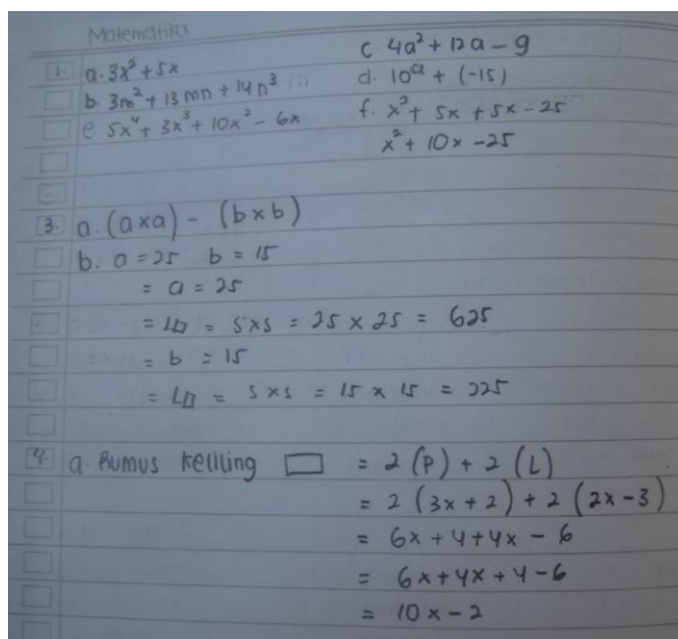 Matematika
1. a. 3x² + 5x
b. 3m² + 13 mn + 14n³
e 5x⁴ + 3x³ + 10x² - 6x
c. 4a² + 12a - 9
d. 10a + (-15)
f. x² + 5x + 5x - 25
x² + 10x - 25
3. a. (a x a) - (b x b)
b. a = 25 b = 15
= a = 25
= L□ = s x s = 25 x 25 = 625
= b = 15
= L□ = s x s = 15 x 15 = 225
4. a. Rumus keliling ▭ = 2 (P) + 2 (L)
= 2 (3x + 2) + 2 (2x - 3)
= 6x + 4 + 4x - 6
= 6x + 4x + 4 - 6
= 10x - 2